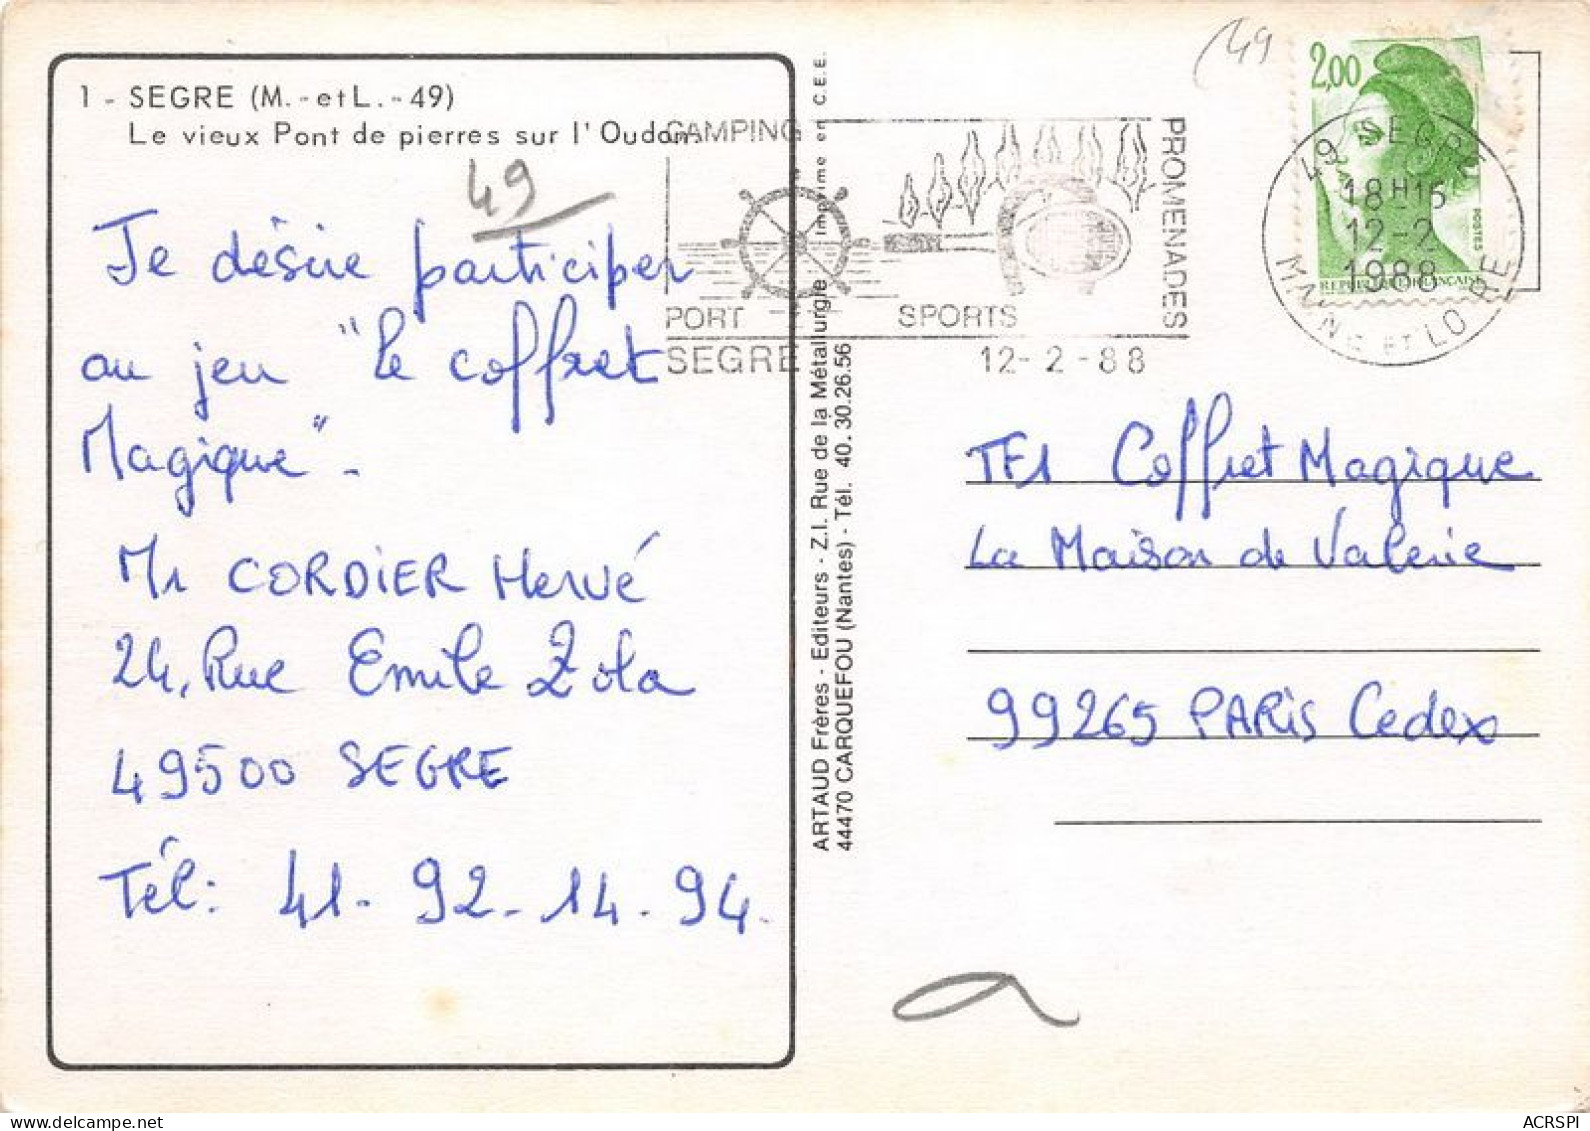 1 - SEGRE (M. - et L. - 49)
Le vieux Pont de pierres sur l'Oudon.
49
Je désire participer
au jeu "le coffret
Magique" -
Mr CORDIER Hervé
24, Rue Emile Zola
49500 SEGRE
Tél: 41- 92 - 14 - 94.
ARTAUD Frères - Editeurs - Z.I. Rue de la Métallurgie Imprimé en C.E.E.
44470 CARQUEFOU (Nantes) - Tél. 40. 30.26.56
CAMPING
PROMENADES
PORT
SPORTS
SEGRE
12- 2 -88
49
2,00
POSTES
REPUBLIQUE FRANÇAISE
49 SEGRE
18H15
12-2
1988
MAINE ET LOIRE
TF1 Coffret Magique
La Maison de Valerie
99265 PARIS Cedex
ACRSPI